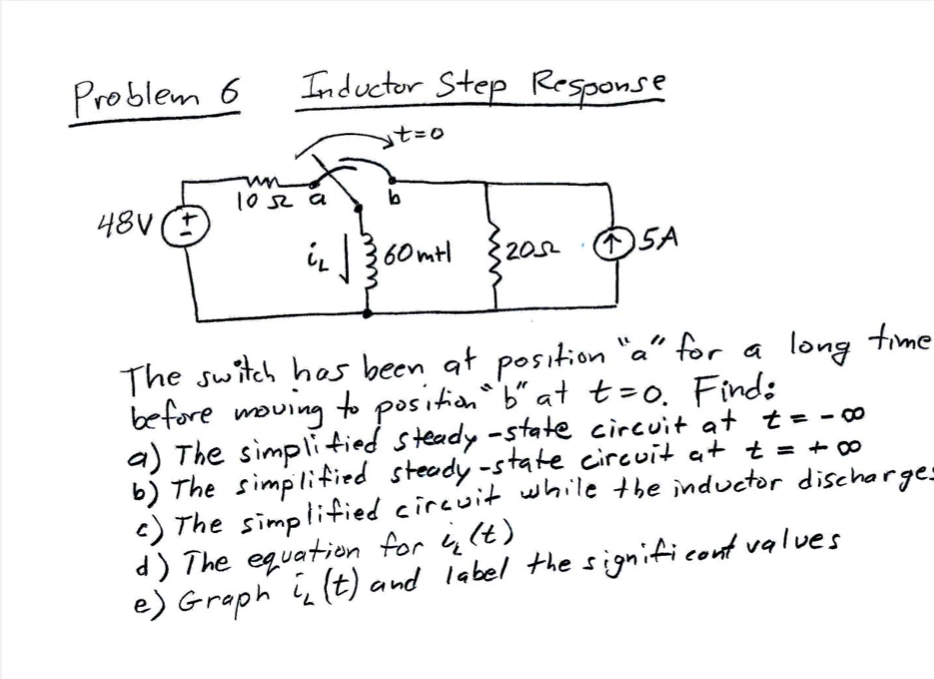 Problem 6 Inductor Step Response
t=0
10 Ω a b
48V + -
i_L 60mH 20Ω 5A
The switch has been at position "a" for a long time
before moving to position "b" at t=0. Find:
a) The simplified steady-state circuit at t = -∞
b) The simplified steady-state circuit at t = +∞
c) The simplified circuit while the inductor discharges
d) The equation for i_L(t)
e) Graph i_L(t) and label the significant values